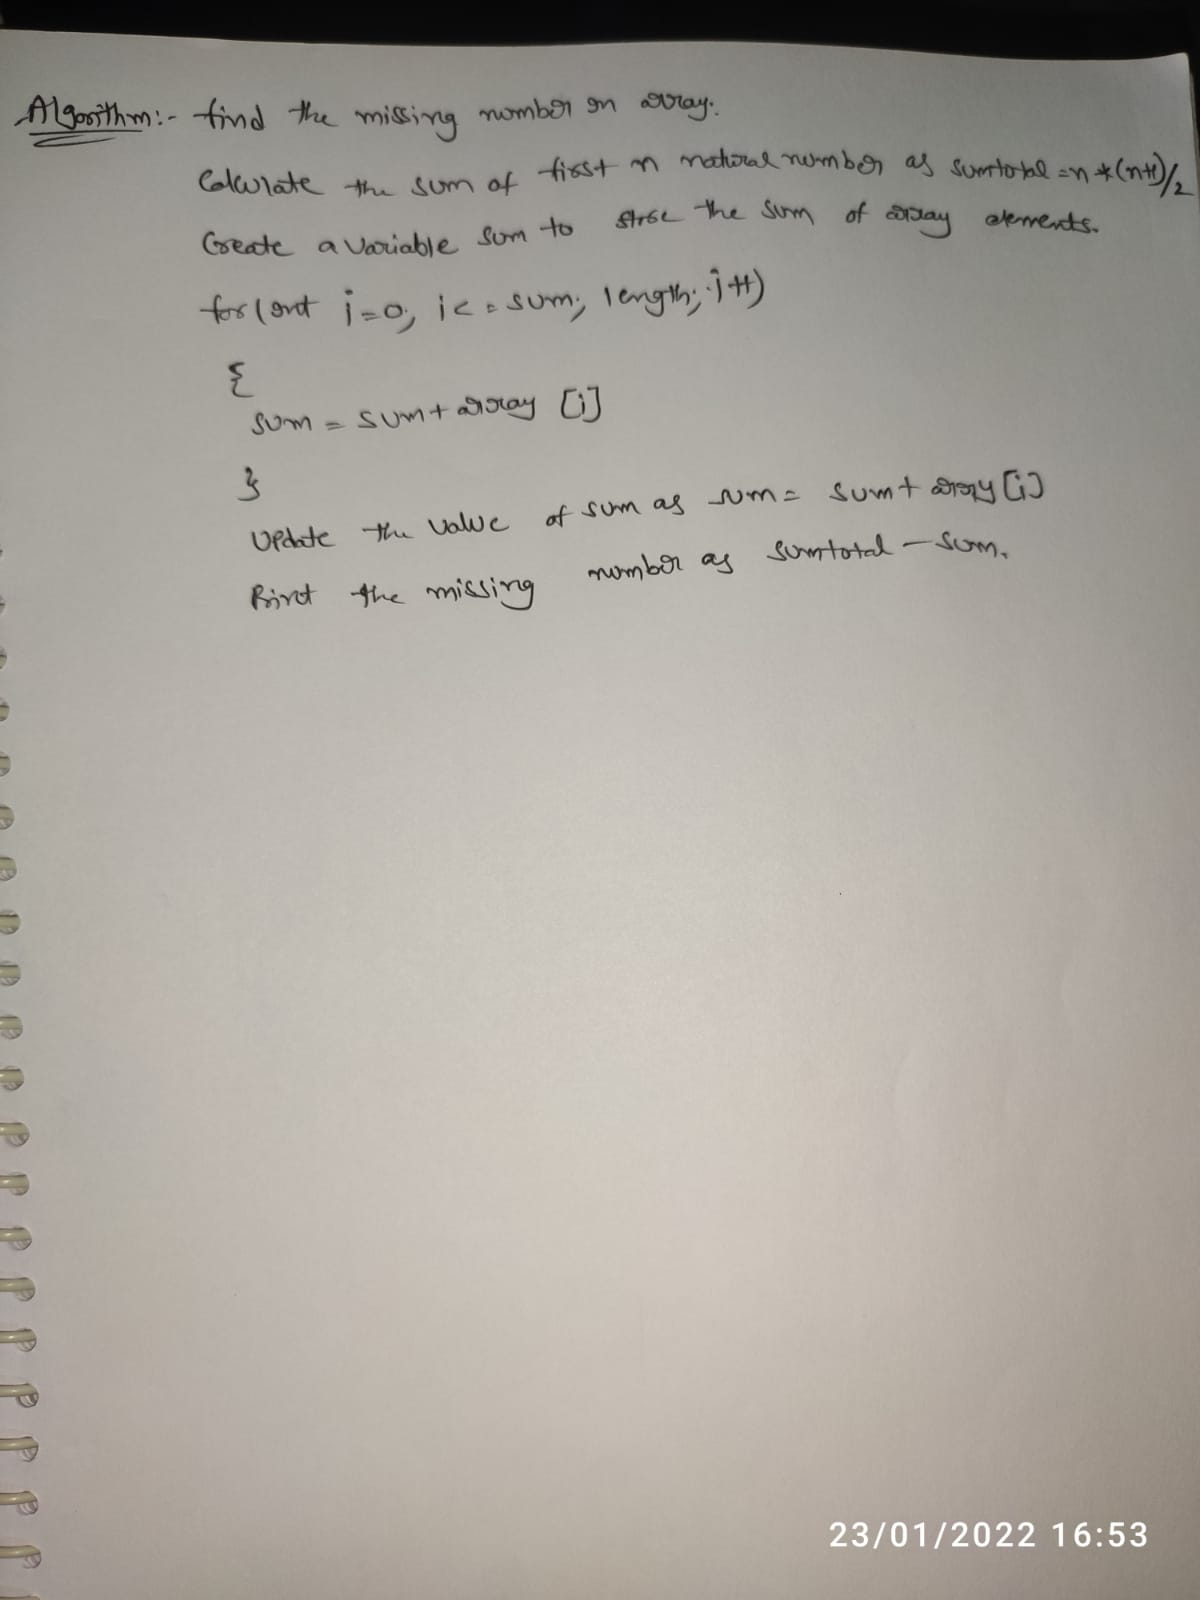 Algorithm:- find the missing number in array.
Calculate the sum of first n natural number as sumtotal =n*(n+1)/2
Create a variable sum to store the sum of array elements.
for (int i=0; i<=sum; length; i++)
{
sum = sum + array [i]
}
Update the value of sum as sum = sum + array [i]
Print the missing number as sumtotal - sum.
23/01/2022 16:53